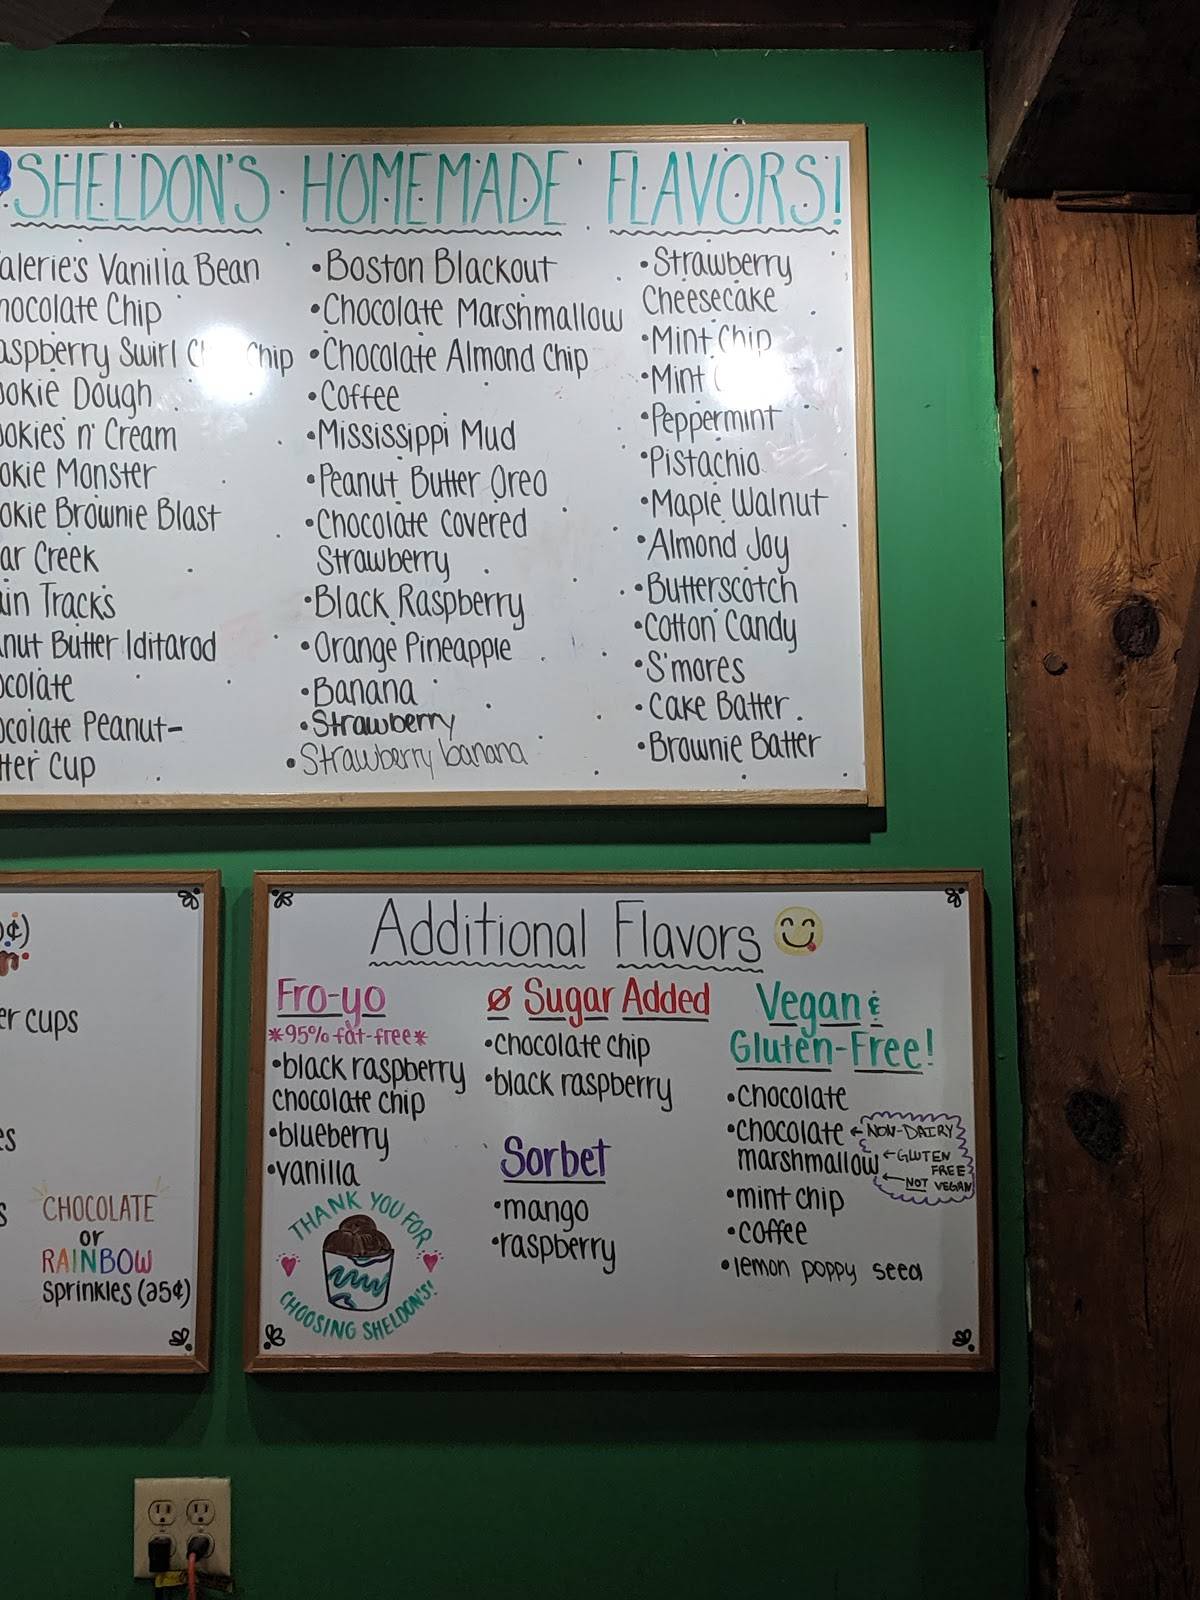 SHELDON'S HOMEMADE FLAVORS!
alerie's Vanilla Bean
hocolate Chip
aspberry Swirl Chip
ookie Dough
ookies n' Cream
okie Monster
okie Brownie Blast
ar Creek
in Tracks
nut Butter Iditarod
ocolate
ocolate Peanut-
tter Cup
•Boston Blackout
•Chocolate Marshmallow
•Chocolate Almond Chip
•Coffee
•Mississippi Mud
•Peanut Butter Oreo
•Chocolate Covered
Strawberry
•Black Raspberry
•Orange Pineapple
•Banana
•Strawberry
•Strawberry banana
•Strawberry
Cheesecake
•Mint Chip
•Mint
•Peppermint
•Pistachio
•Maple Walnut
•Almond Joy
•Butterscotch
•Cotton Candy
•S'mores
•Cake Batter
•Brownie Batter
¢)
er cups
es
s
CHOCOLATE
or
RAINBOW
Sprinkles (25¢)
Additional Flavors
Fro-yo
*95% fat-free*
•black raspberry
chocolate chip
•blueberry
•vanilla
THANK YOU FOR
CHOOSING SHELDON'S!
Ø Sugar Added
•chocolate chip
•black raspberry
Sorbet
•mango
•raspberry
Vegan &
Gluten-Free!
•chocolate
•chocolate ← NON-DAIRY
marshmallow ← GLUTEN
FREE
← NOT VEGAN
•mint chip
•coffee
•lemon poppy seed